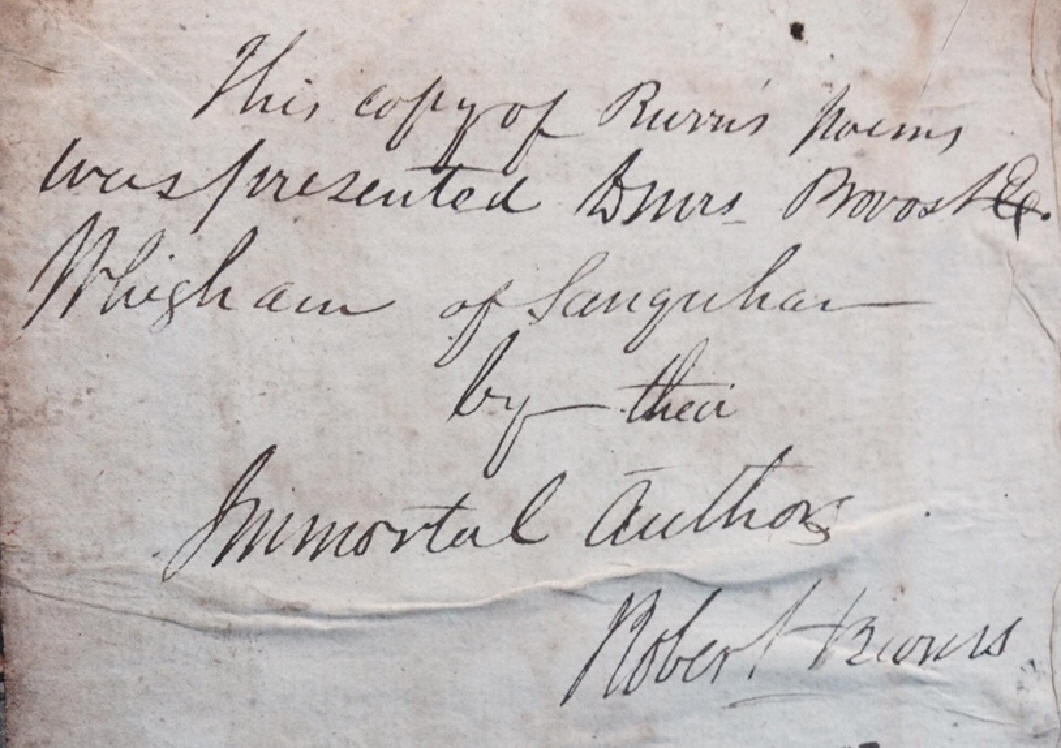 This copy of Burns poems
was presented to Mrs. Provost
Whigham of Sanquhar
by their
Immortal Author
Robert Burns.